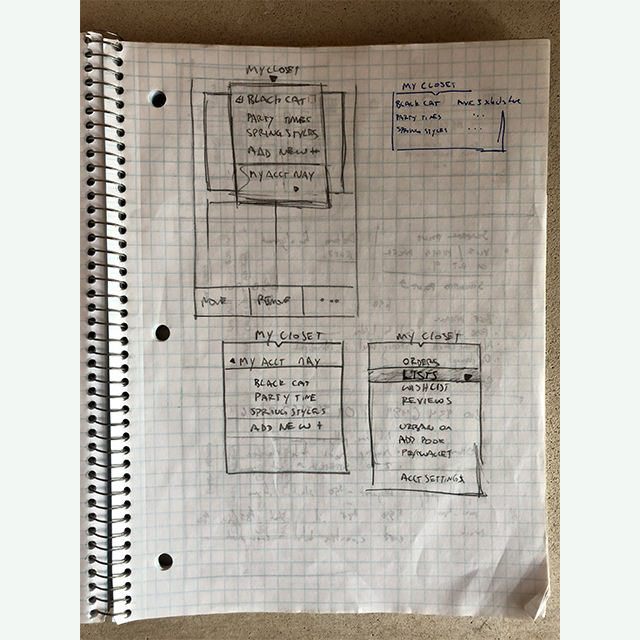 MY CLOSET
BLACK CAT
PARTY TIMES
SPRING STYLES
ADD NEW +
MY ACCT NAV
MOVE
REMOVE
...
MY CLOSET
BLACK CAT
PARTY TIMES
...
SPRING STYLES
...
MY CLOSET
MY ACCT NAV
BLACK CAT
PARTY TIME
SPRING STYLES
ADD NEW +
MY CLOSET
ORDERS
LISTS
WISHLIST
REVIEWS
URBAN ON
ADD BOOK
PAY/WALLET
ACCT SETTINGS